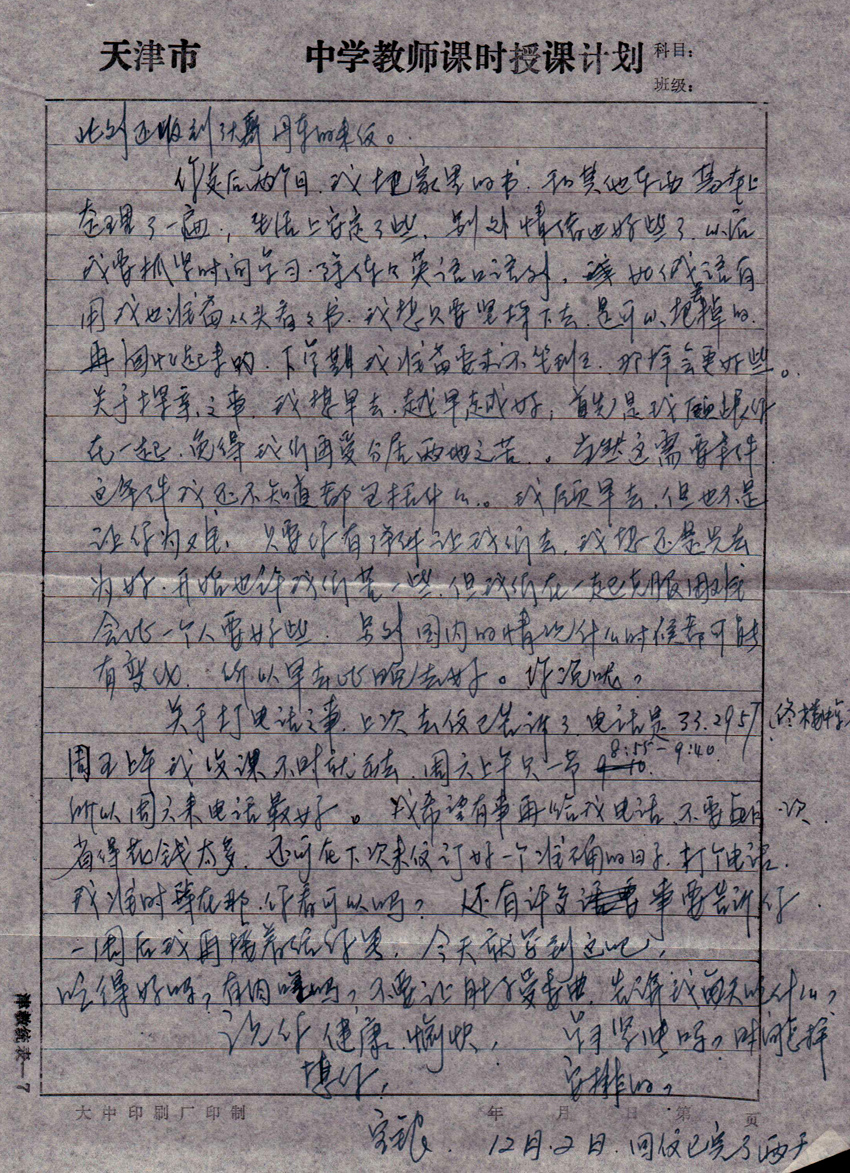 天津市 中学教师课时授课计划 科目:
班级:
此外还收到 的来信。
你走后两个月,我把家里的书,和其他东西基本上
整理了一遍,生活上安定了些,另外情绪也好些了,以后
我要抓紧时间学习,除练英语口语外,
用我也准备从头看看书,我想只要坚持下去,是可以把掉的
再回忆起来的,下学期我准备要求不坐班,那样会更好些。
关于探亲之事,我想早去,越早越好,首先是我愿跟你
在一起,免得我们再受分居两地之苦。当然这需要条件,
这条件我还不知道都包括什么。我愿早去,但也不是
让你为难,只要你有条件让我们去,我想还是先去
为好,开始也许我们苦一些,但我们在一起克服困难
会比一个人要好些,另外国内的情况什么时候都可能
有变化,所以早去比晚去好。你说呢?
关于打电话之事,上次去信已告诉了,电话是33.2957
周五上午我没课不时就去,周六上午只一节 8:55-9:40
所以周六来电话最好。我希望有事再给我电话,不要每月一次
省得花钱太多,还可在下次来信订好一个准确的日子,打个电话,
我准时等在那,你看可以吗?还有许多事要告诉你
一周后我再接着给你写,今天就写到这吧,
吃得好吗,有肉吗,不要让肚子受委曲,告诉我每天吃什么,
祝你健康、愉快, 学习紧吗?时间怎样
想你, 安排的?
大中印刷厂印制 年 月 日 第 页
12月.2日. 回信已完了两天